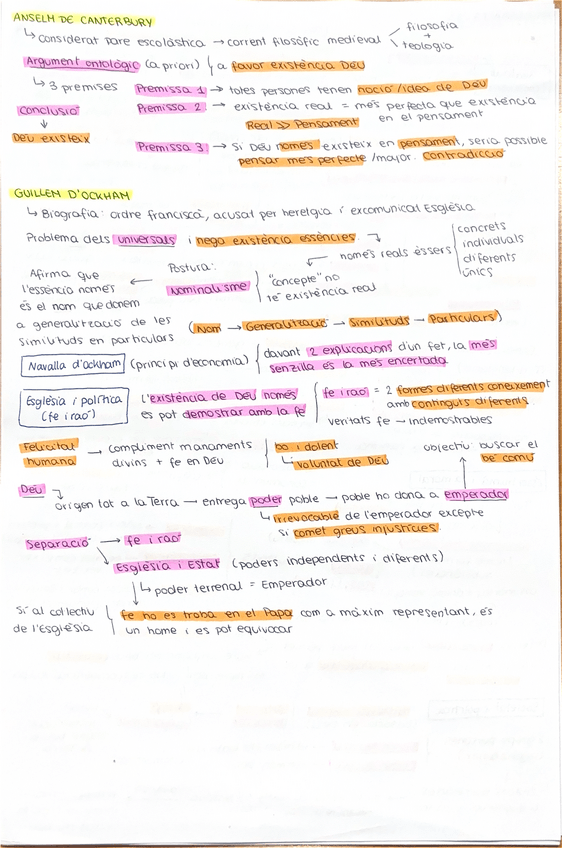 ANSELM DE CANTERBURY
↳ considerat pare escolàstica → corrent filosòfic medieval < filosofia + teologia
Argument ontològic (a priori) { a favor existència Déu
↳ 3 premises Premissa 1 → totes persones tenen noció/idea de Déu
Conclusió Premissa 2 → existència real = més perfecta que existència
Real >> Pensament en el pensament
↓
Déu existeix
Premissa 3 → Si Déu només existeix en pensament, seria possible
pensar més perfecte/major. Contradicció
GUILLEM D'OCKHAM
↳ Biografia: ordre franciscà, acusat per heretgia i excomunicat Església
Problema dels universals i nega existència essències.
només reals éssers
concrets
individuals
diferents
únics
Postura:
Nominalisme
"concepte" no
té existència real
Afirma que
l'essència només
és el nom que donem
a generalització de les
similituds en particulars
(Nom → Generalització → Similituds → Particulars)
Navalla d'Ockham (principi d'economia) { davant 2 explicacions d'un fet, la més
senzilla és la més encertada
Església i política
(fe i raó)
L'existència de Déu només
es pot demostrar amb la fe
fe i raó = 2 formes diferents coneixement
amb continguts diferents
veritats fe → indemostrables
Felicitat
humana
→ compliment manaments
divins + fe en Déu
bo i dolent
↳ voluntat de Déu
objectiu: buscar el
bé comú
Déu
origen tot a la Terra → entrega poder poble → poble ho dona a emperador
↳ irrevocable de l'emperador excepte
si comet greus injustícies.
Separació → fe i raó
Església i Estat (poders independents i diferents)
↳ poder terrenal = Emperador
Sí al col·lectiu
de l'Església
fe no es troba en el Papa com a màxim representant, és
un home i es pot equivocar